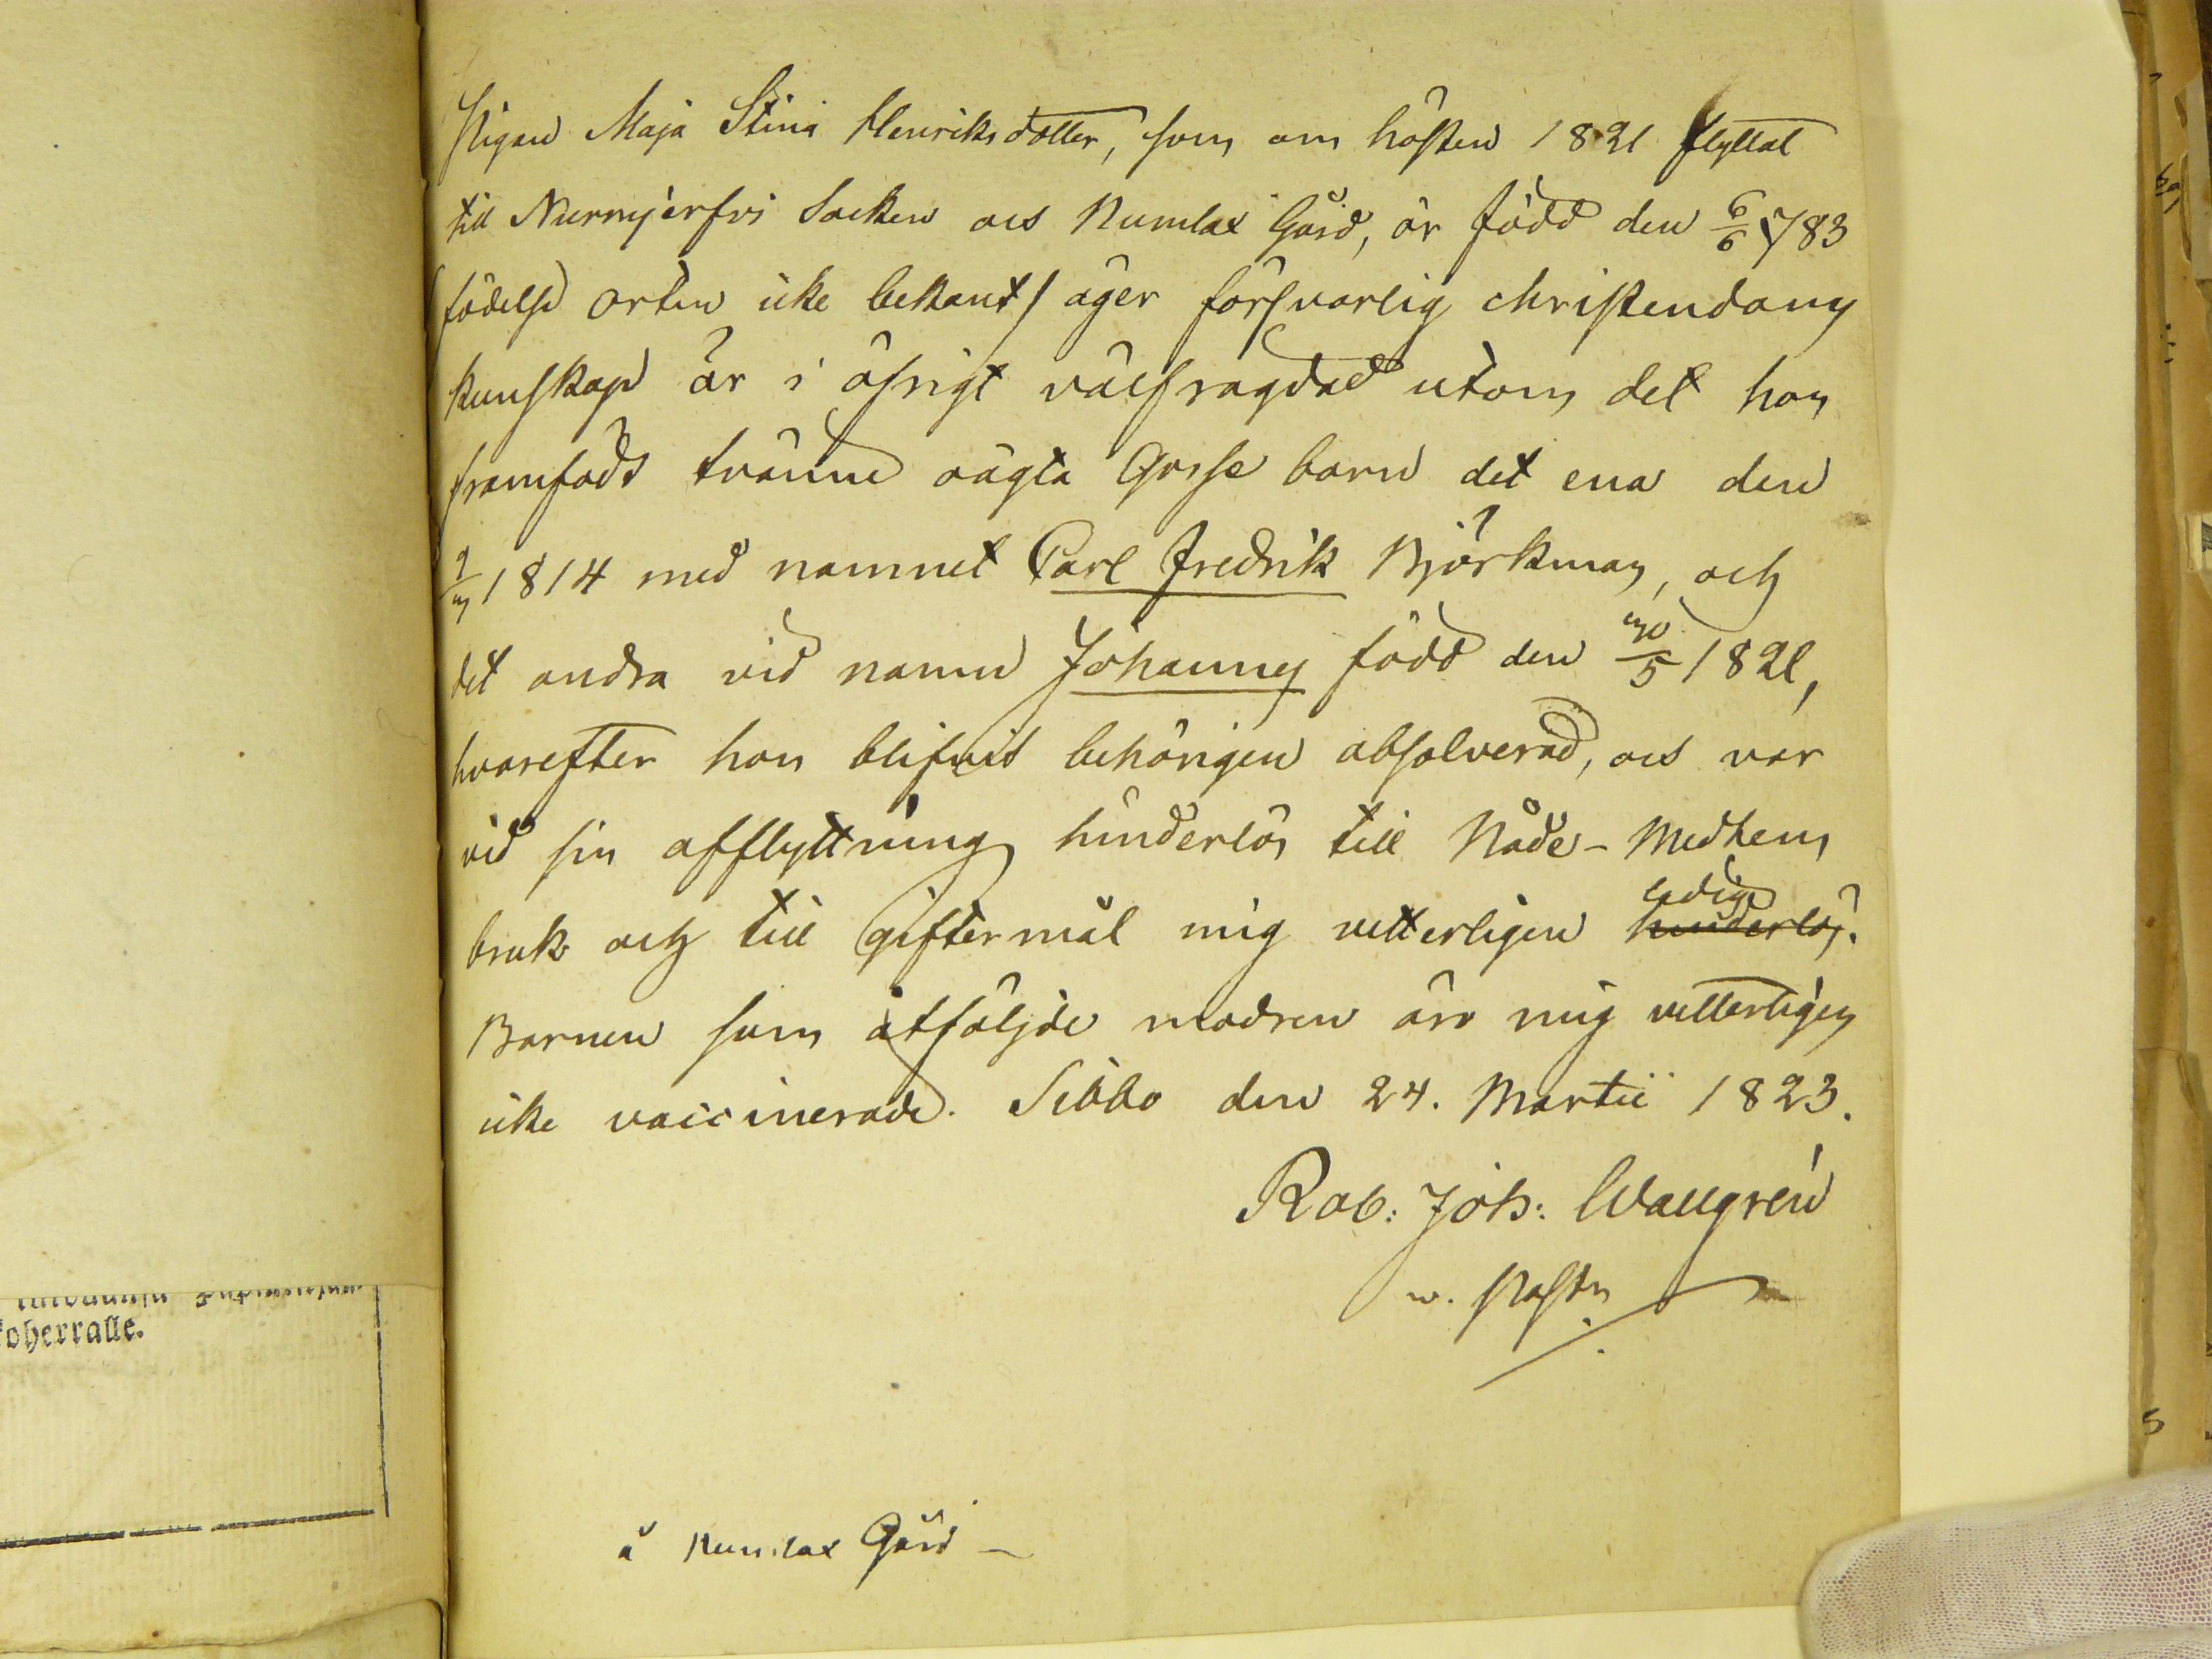 Pigan Maja Stina Henriksdotter, som om hösten 1821 flyttat
till Nurmijerfvi Socken och Numlax Gård, är född den 6/6 783
födelse orten icke bekant / äger försvarlig christendoms
kunskap är i öfrigt välfrägdad utom det hon
framfödt tvänne oägta Gosse barn det ena den
1814 med namnet Carl Fredrik Björkman, och
det andra vid namn Johannes född den 30/5 1821,
hvarefter hon blifvit behörigen absolverad, och var
vid sin afflyttning hinderlös till Nåde-Medlens
ledig
bruk och till giftermål mig vetterligen hinderlös.
Barnen som åtföljde modren äro mig vetterligen
icke vaccinerade. Sibbo den 24. Martii 1823.
Rob: Joh: Wallgrén
v. Pastor
å Numlax Gård
oherralle.